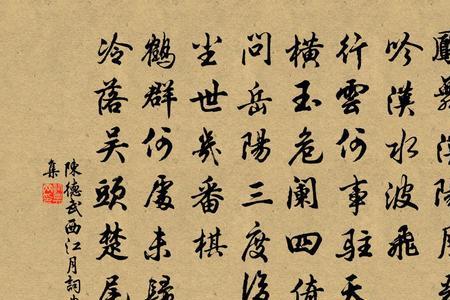 漢陽
吟漢水波飛
行雲何事駐天
橫玉危闌四倚
問岳陽三度
尘世幾番棋
鶴群何處未歸
冷落吳頭楚尾
陳德武西江月詞
集